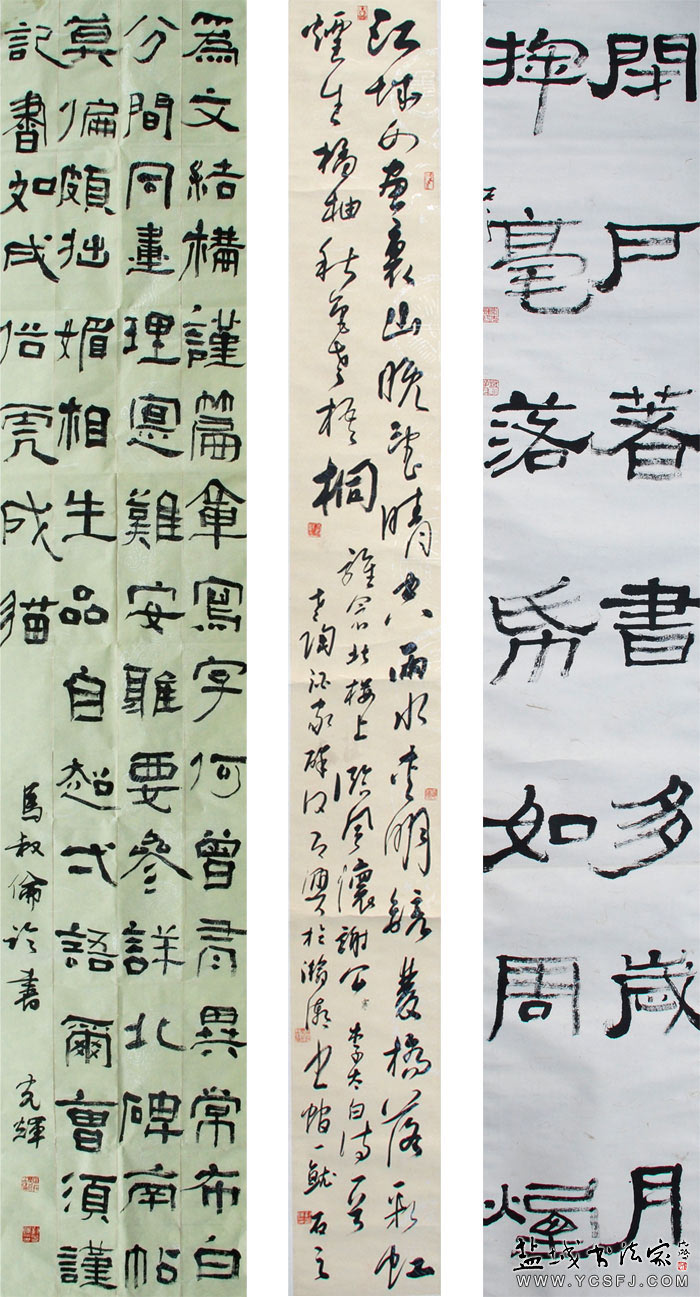 為文結構謹篇章寫字何曾有異常布白
分間同畫理冣難安雅要參詳北碑南帖
莫偏頗拙媚相生品自超弌語爾曹須謹
記書如成俗虎成猫
馬叔倫論書 克輝
江城如畫裏山晚望晴空兩水夾明鏡雙橋落彩虹
煙生橘柚秋色老梧桐
誰念北樓上臨風懷謝公 李太白詩一首
石之
閉戶著書多歲月
揮毫落帋如周煙
盐城书法家
WWW.YCSFJ.COM